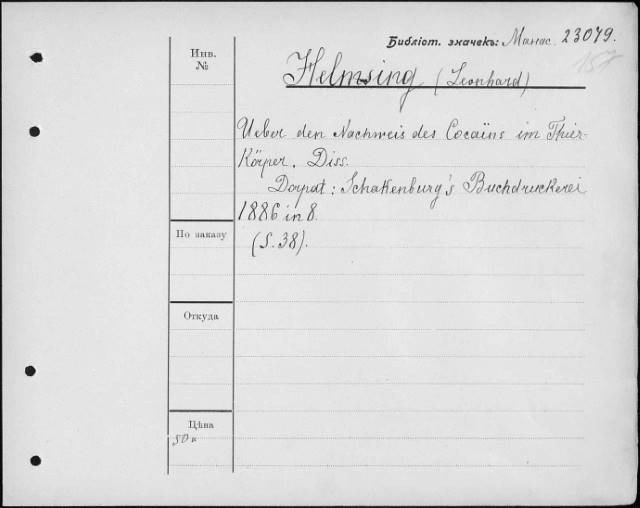 Библіот. значекъ: Манас. 23079.
157
Инв.
№
Helmsing (Leonhard)
Ueber den Nachweis des Cocaïns im Thier-
Körper. Diss.
Dorpat: Schakenburg's Buchdruckerei
1886 in 8.
(S. 38).
По заказу
Откуда
Цѣна
50 к